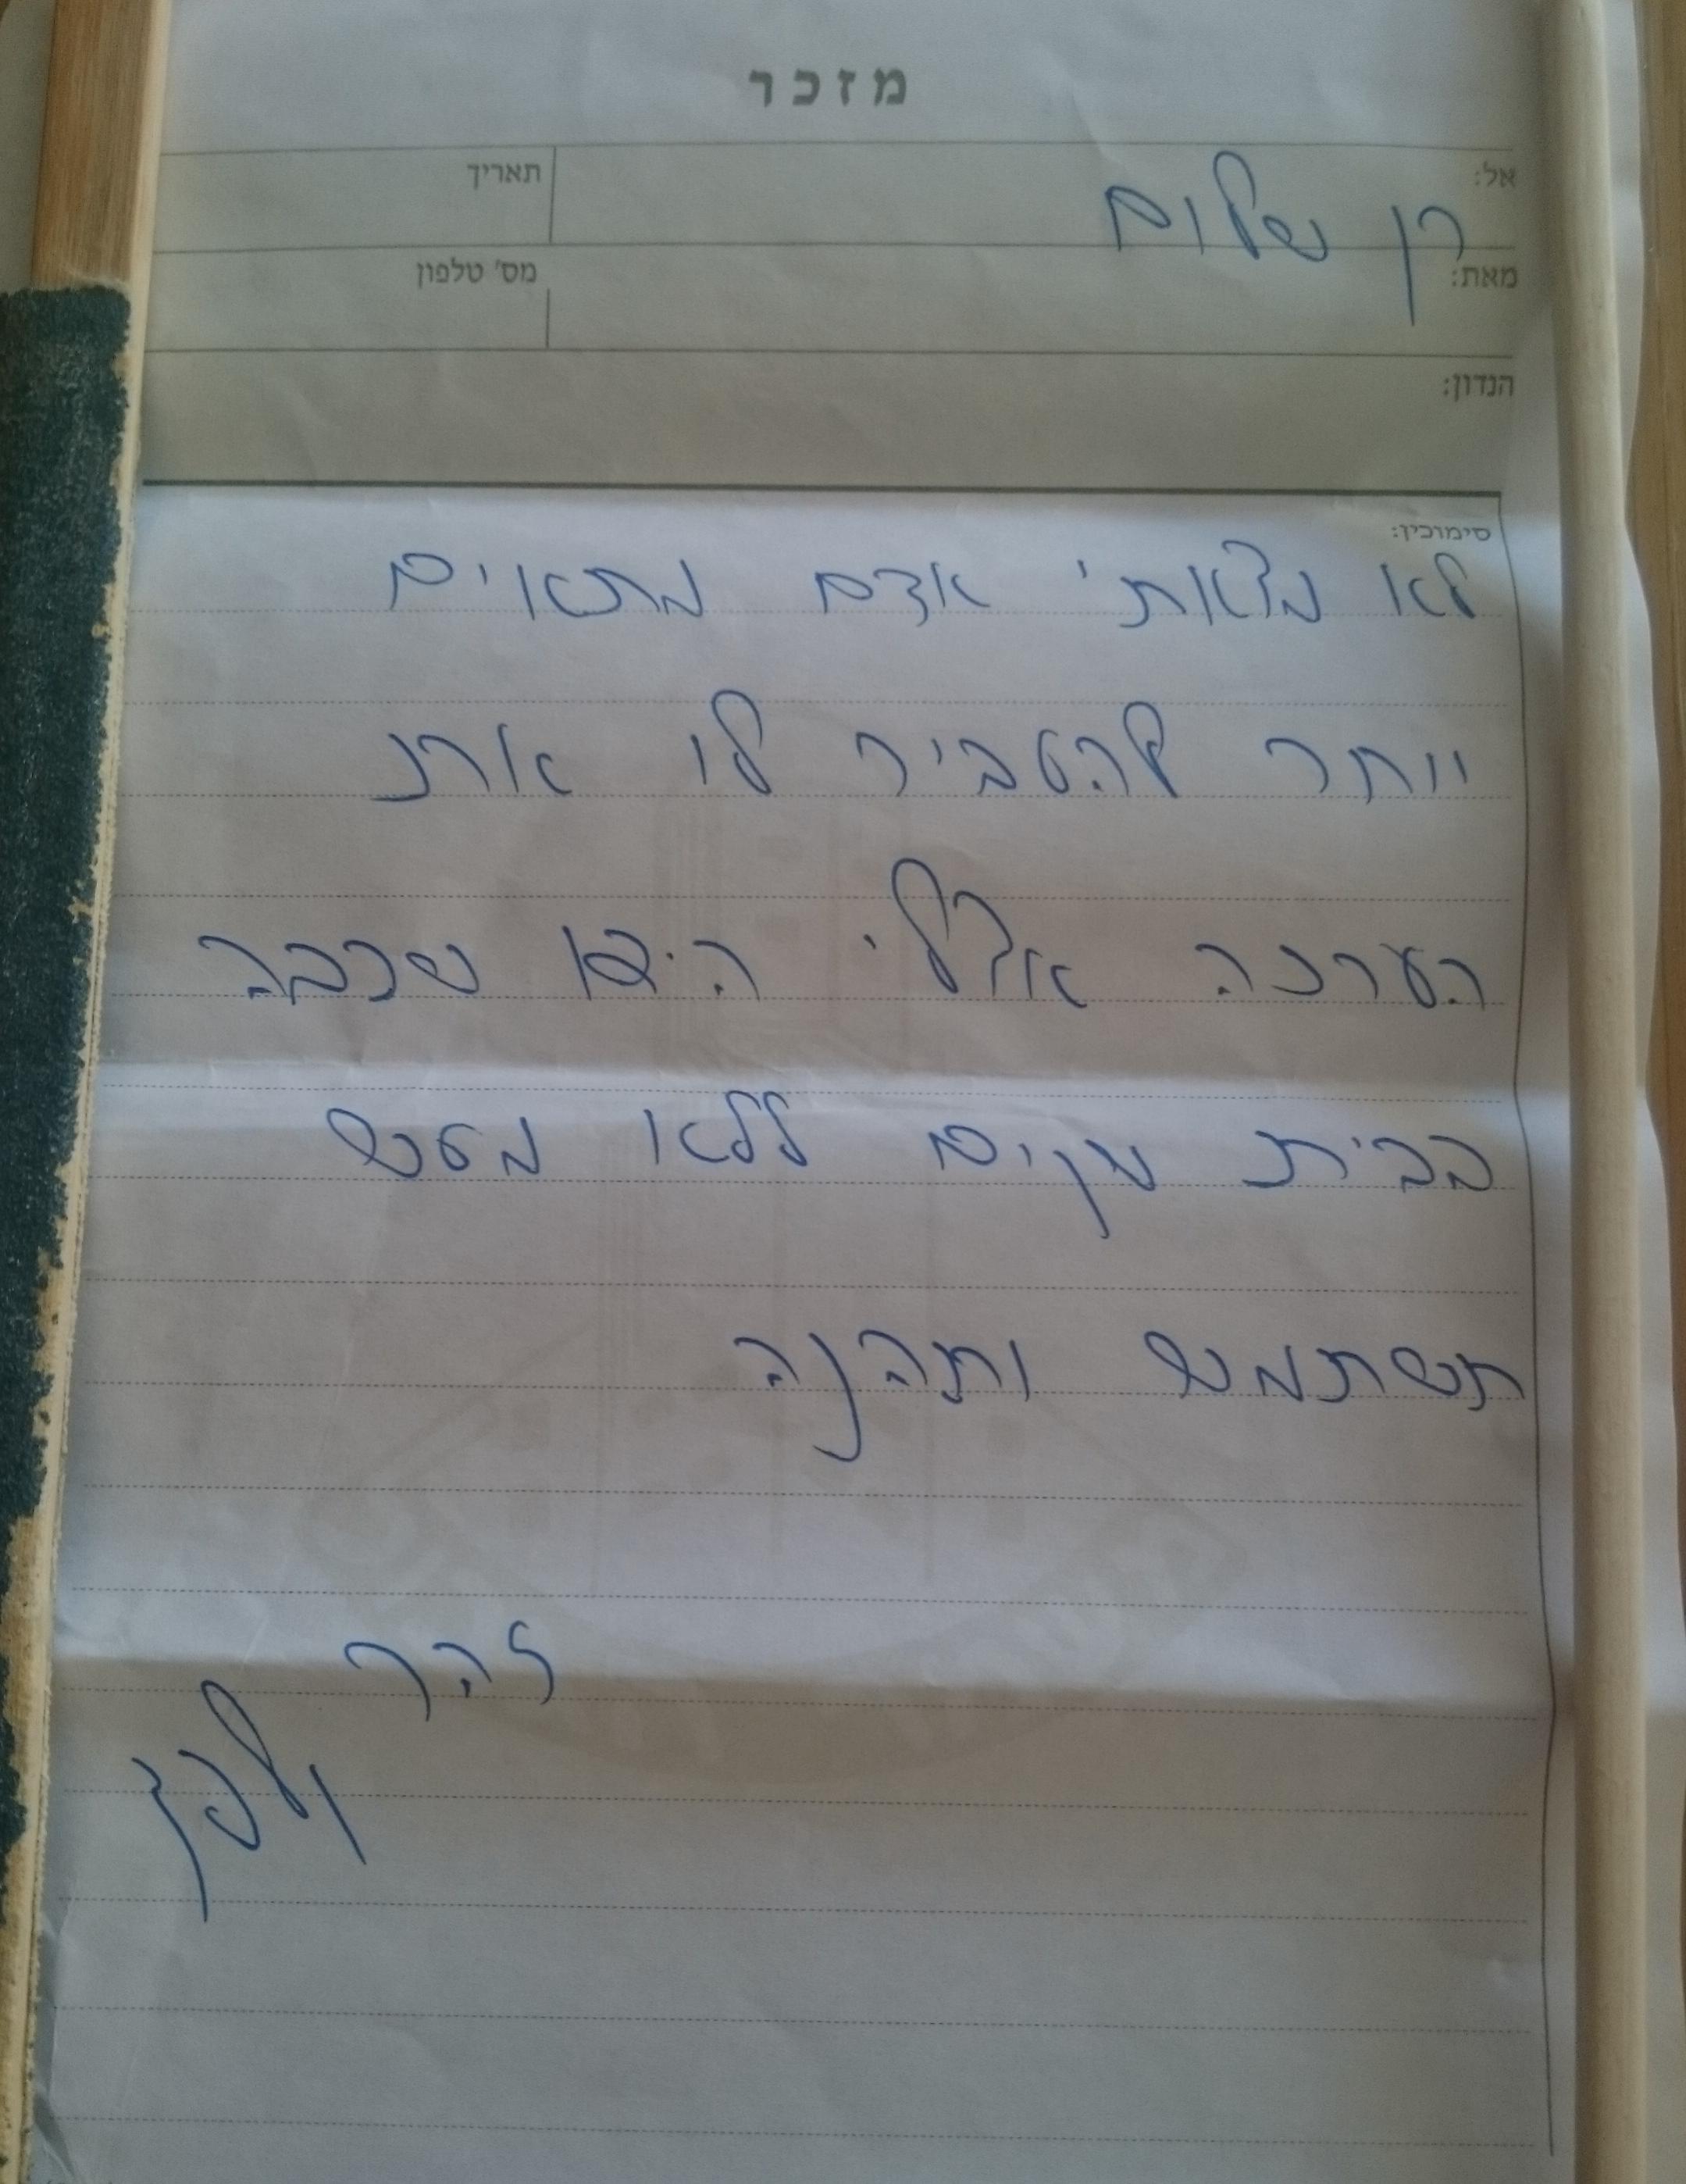 מזכר
אל:
תאריך
רן שלום
מאת:
מס' טלפון
הנדון:
סימוכין:
לא מצאתי אדם מתאים
יותר להעביר לו את
הערכה אצלי היא שכבה
בבית שנים ללא מעש
תשתמש ותהנה
זהר